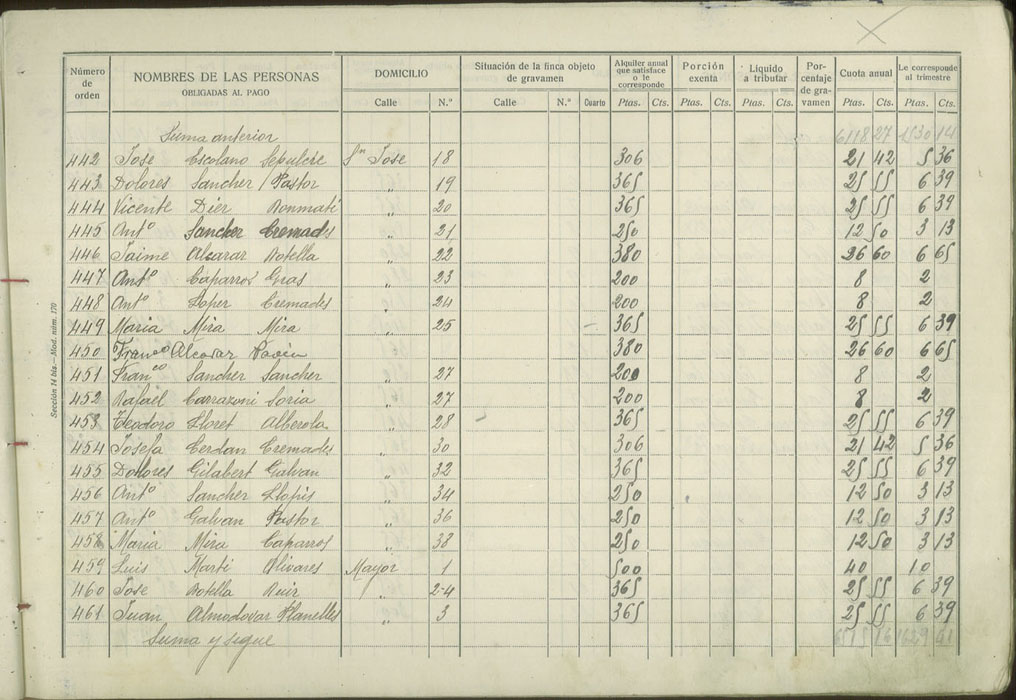 Número de orden NOMBRES DE LAS PERSONAS OBLIGADAS AL PAGO DOMICILIO Situación de la finca objeto de gravamen Alquiler anual que satisface o le corresponde Porción exenta Líquido a tributar Porcentaje de gravamen Cuota anual Le corresponde al trimestre
Calle N.º Calle N.º Cuarto Ptas. Cts. Ptas. Cts. Ptas. Cts. Ptas. Cts. Ptas. Cts.
Suma anterior 6118 27 1530 14
442 Jose Escolano Sepulcre Sn Jose 18 306 21 42 5 36
443 Dolores Sancher Pastor " 19 365 25 55 6 39
444 Vicente Dier Bonmati " 20 365 25 55 6 39
445 Antº Sancher Cremades " 21 250 12 50 3 13
446 Jaime Alcarar Botella " 22 380 26 60 6 65
447 Antº Caparros Gras " 23 200 8 2
448 Antº Loper Cremades " 24 200 8 2
449 Maria Mira Mira " 25 365 25 55 6 39
450 Franco Alcovar " 380 26 60 6 65
451 Franco Sancher Sancher " 27 200 8 2
452 Rafael Carrazoni Soria " 27 200 8 2
453 Teodoro Lloret Alberola " 28 365 25 55 6 39
454 Josefa Cerdan Cremades " 30 306 21 42 5 36
455 Dolores Gilabert Galvan " 32 365 25 55 6 39
456 Antº Sancher Llopis " 34 250 12 50 3 13
457 Antº Galvan Pastor " 36 250 12 50 3 13
458 Maria Mira Caparros " 38 250 12 50 3 13
459 Luis Marti Olivares Mayor 1 500 40 10
460 Jose Botella Ruir " 2-4 365 25 55 6 39
461 Juan Almodovar Planelles " 3 365 25 55 6 39
Suma y sigue 16 1629
Sección 14 bis.—Mod. núm. 170